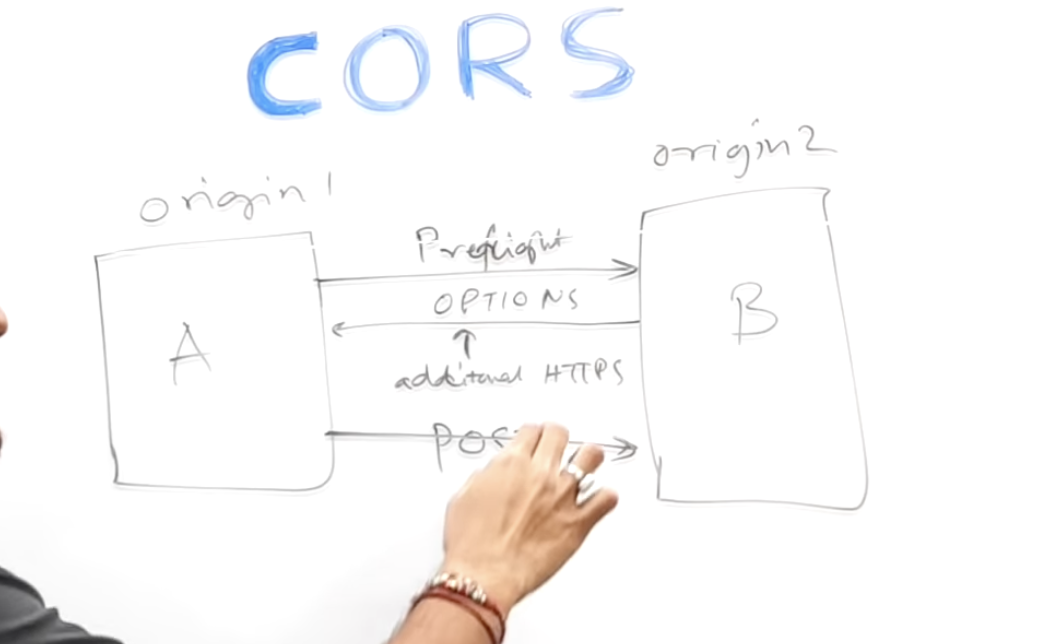 CORS
origin 1
origin 2
Preflight
OPTIONS
additional HTTPS
A
B